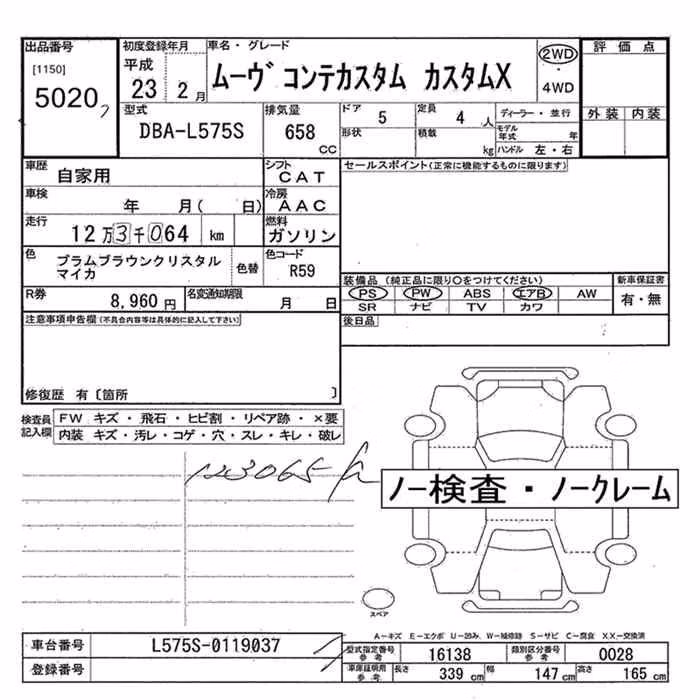 出品番号
[1150]
5020
初度登録年月
平成
23 2月
車名・グレード
ムーヴ コンテカスタム カスタムX
2WD
・
4WD
評価点
外装 内装
型式
DBA-L575S
排気量
658
CC
ドア
5
形状
定員
4人
積載
kg
ディーラー・並行
モデル年式 年
ハンドル 左・右
車歴
自家用
シフト
CAT
セールスポイント(正常に機能するものに限ります)
車検
年 月( 日)
冷房
AAC
走行
12万3千064 km
燃料
ガソリン
色
プラムブラウンクリスタル
マイカ
色替
色コード
R59
R券
8,960円
名変通知期限
月 日
装備品 (純正品に限り○をつけてください)
PS PW ABS エアB AW
SR ナビ TV カワ
新車保証書
有・無
後日品
注意事項申告欄(不具合内容等は具体的に記入して下さい)
修復歴 有〔箇所 〕
検査員
記入欄
FW キズ・飛石・ヒビ割・リペア跡・×要
内装 キズ・汚レ・コゲ・穴・スレ・キレ・破レ
123065
ノー検査・ノークレーム
スペア
A-キズ E-エクボ U-凹み W-補修跡 S-サビ C-腐食 XX-交換済
車台番号 L575S-0119037
登録番号
型式指定番号
参考
16138
類別区分番号
参考
0028
車庫証明用
参考
長さ 339 cm 幅 147 cm 高さ 165 cm